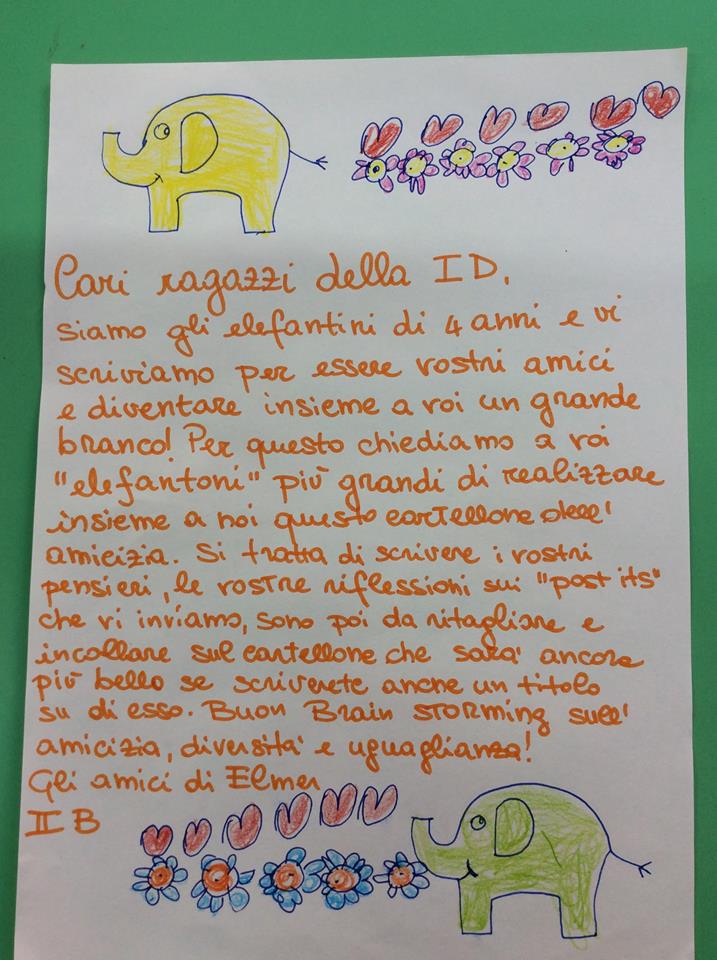 Cari ragazzi della ID.
siamo gli elefantini di 4 anni e vi
scriviamo per essere vostri amici
e diventare insieme a voi un grande
branco! Per questo chiediamo a voi
"elefantoni" più grandi di realizzare
insieme a noi questo cartellone dell'
amicizia. Si tratta di scrivere i vostri
pensieri, le vostre riflessioni sui "post its"
che vi inviamo, sono poi da ritagliare e
incollare sul cartellone che sarà ancora
più bello se scriverete anche un titolo
su di esso. Buon Brain STORMING sull'
amicizia, diversità e uguaglianza!
Gli amici di Elmer
II B